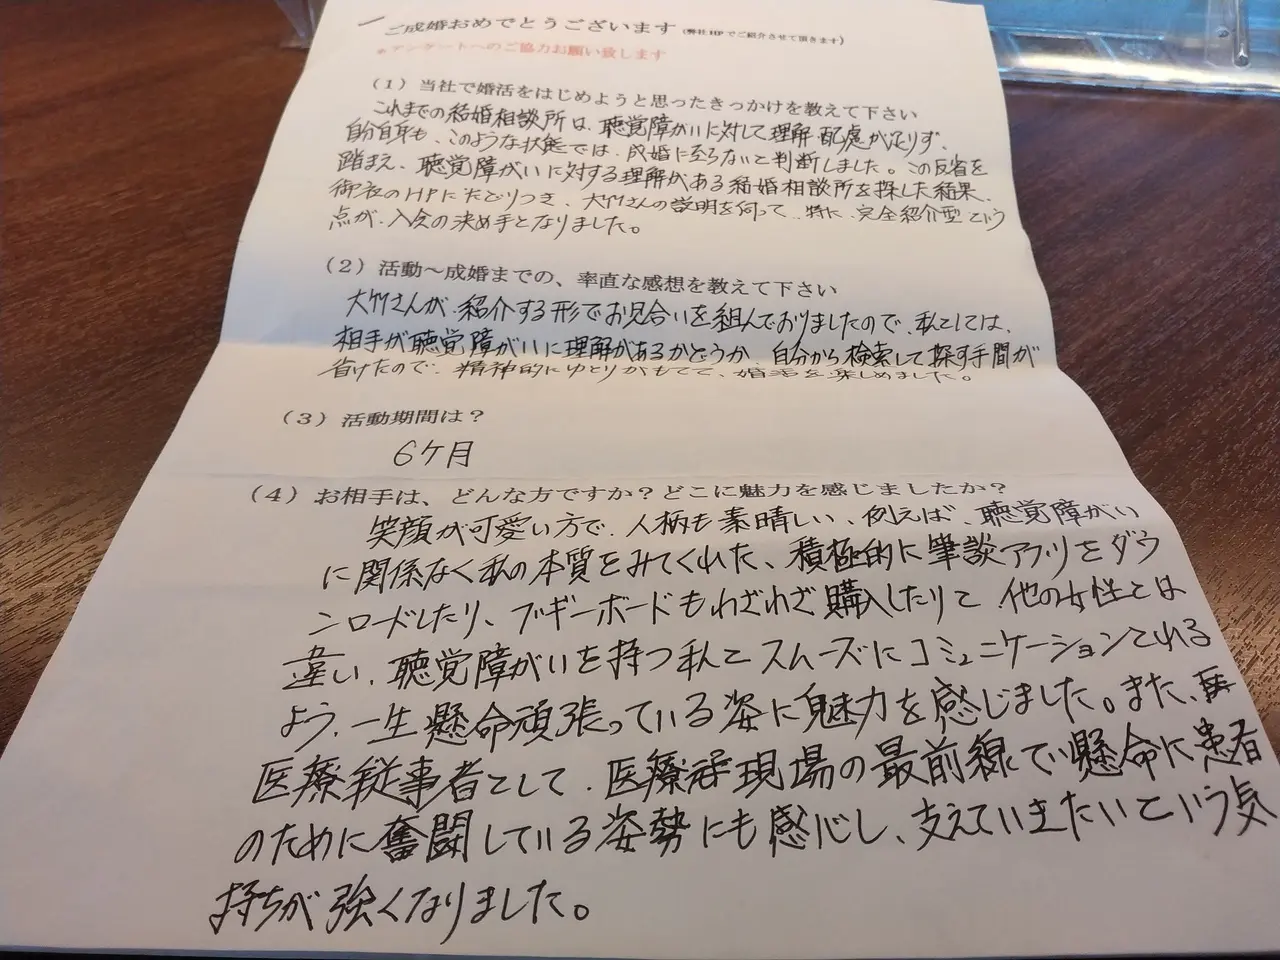 ご成婚おめでとうございます (弊社HPでご紹介させて頂きます)
＊アンケートへのご協力お願い致します
(1) 当社で婚活をはじめようと思ったきっかけを教えて下さい
これまでの結婚相談所は、聴覚障がいに対して理解・配慮が足りず、
自分自身も、このような状態では、成婚に至らないと判断しました。この反省を
踏まえ、聴覚障がいに対する理解がある結婚相談所を探した結果、
御社のHPにたどりつき、大竹さんの説明を伺って、特に、完全紹介型という
点が、入会の決め手となりました。
(2) 活動～成婚までの、率直な感想を教えて下さい
大竹さんが、紹介する形でお見合いを組んでおりましたので、私としては、
相手が聴覚障がいに理解があるかどうか、自分から検索して探す手間が
省けたので、精神的にゆとりがもてて、婚活を楽しめました。
(3) 活動期間は？
6ケ月
(4) お相手は、どんな方ですか？どこに魅力を感じましたか？
笑顔が可愛い方で、人柄も素晴しい、例えば、聴覚障がい
に関係なく私の本質をみてくれた、積極的に筆談アプリをダウ
ンロードしたり、ブギーボードもわざわざ購入したりと、他の女性とは
違い、聴覚障がいを持つ私とスムーズにコミュニケーションとれる
よう、一生懸命頑張っている姿に魅力を感じました。また、
医療従事者として、医療現場の最前線で懸命に患者
のために奮闘している姿勢にも感心し、支えていきたいという気
持ちが強くなりました。